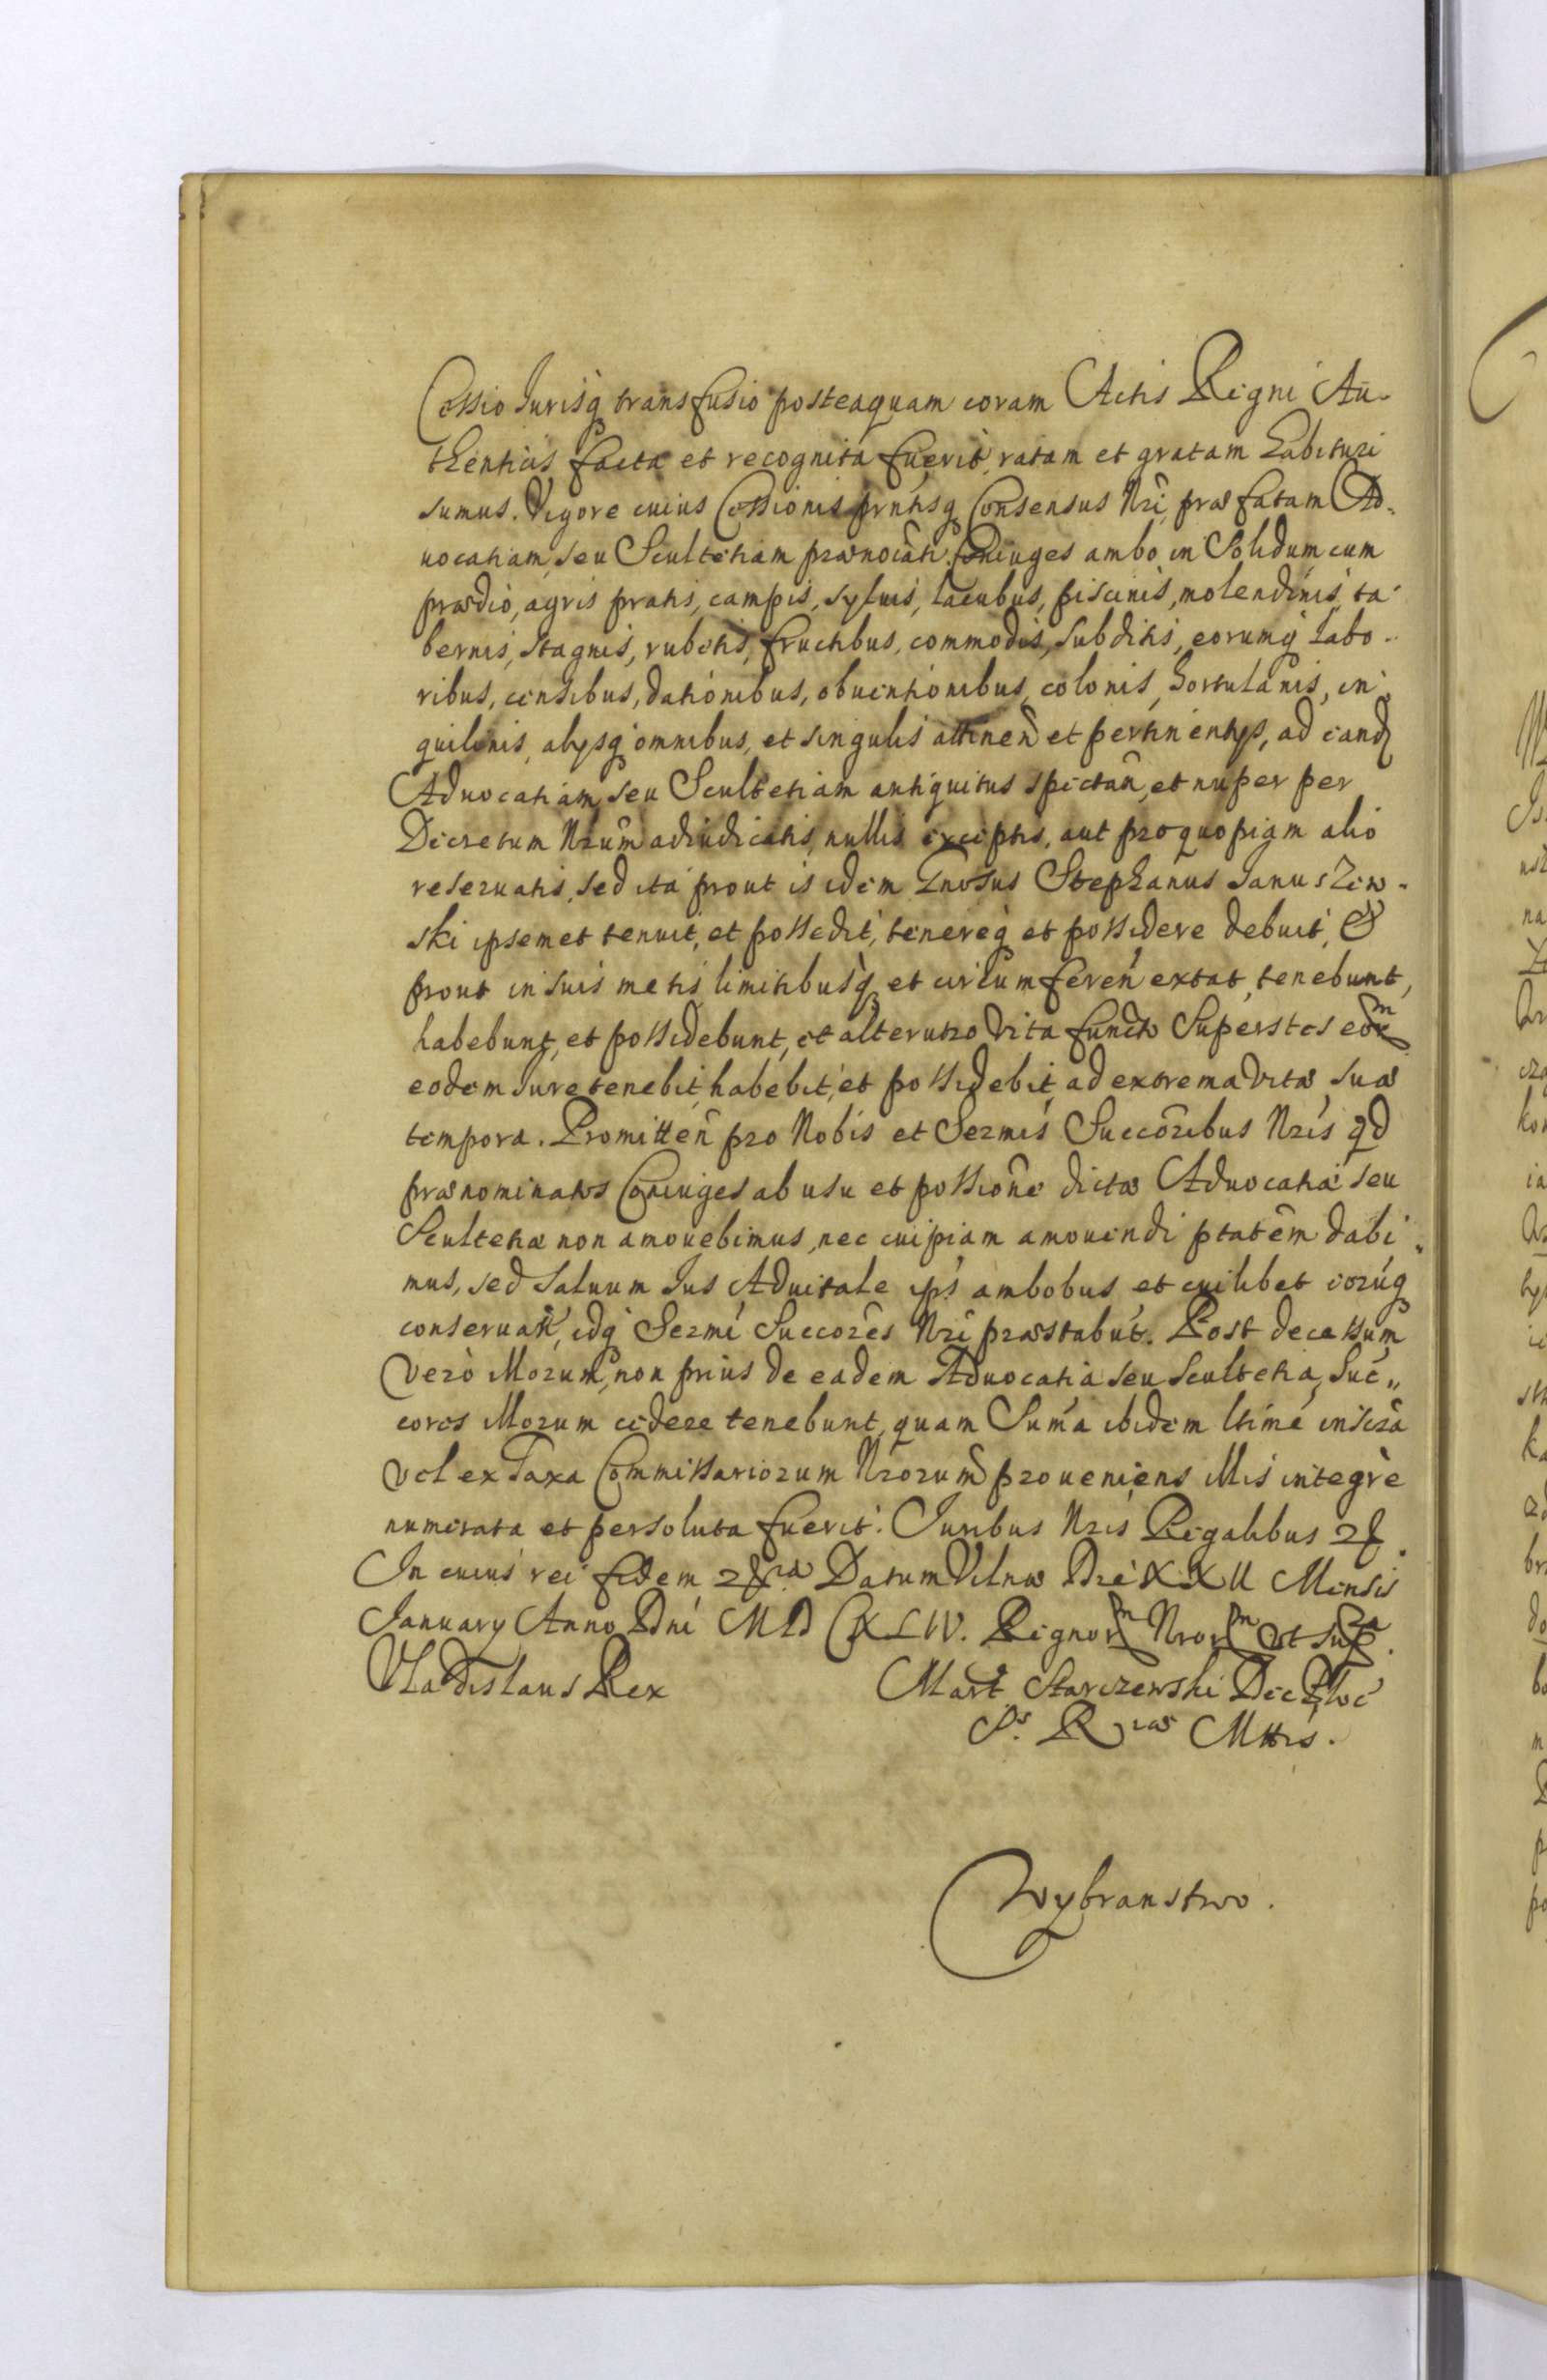 Cessio Jurisq transfusio posteaquam coram Actis Regni Au-
thenticis facta et recognita fuerit, ratam et gratam habituri
sumus. Vigore cuius Cessionis prntisq Consensus Nri, præfatam Ad-
uocatiam, seu Scultetiam prænocati Coniuges ambo in Solidum cum
prædio, agris pratis, campis, syluis, lacubus, piscinis, molendinis, ta-
bernis, stagnis, rubetis, fructibus, commodis, subditis, eorumq labo-
ribus, censibus, dationibus, obuentionibus, colonis, hortulanis, in-
quilinis, alysq omnibus, et singulis attinen et pertinentys, ad eand
Aduocatiam seu Scultetiam antiquitus spectan, et nuper per
Decretum Nrum adiudicatis, nullis exceptis, aut pro quopiam alio
reseruatis, sed ita prout is idem Gnosus Stephanus Januszew-
ski ipsemet tenuit, et possedit, tenereq et possidere debuit, &
prout in suis metis limitibusq et circumferen extat, tenebunt,
habebunt, et possidebunt, et alterutro vita functo Superstes eorm
eodem iure tenebit, habebit, et possidebit, ad extrema vitæ suæ
tempora. Promitten pro Nobis et Sermis Succoribus Nris qd
prænominatos Coniuges ab usu et possione dictæ Aduocatiæ seu
Scultetiæ non amouebimus, nec cuipiam amouendi ptatem dabi-
mus, sed Saluum Jus Aduitale ips ambobus et cuilibet eorúq
conseruab, idq Sermi Succores Nri præstabút. Post decessum
vero illorum, non prius de eadem Aduocatia seu Scultetia, Suc-
cores illorum cedere tenebunt, quam Suma ibidem ltime inscra
vel ex Taxa Commissariorum Nrorum proueniens illis integrè
numerata et persoluta fuerit. Juribus Nris Regalibus
In cuius rei fidem Datum Vilnæ Die XXII Mensis
January Anno Dni MDCXLIV. Regnorm Nrorm vt supra.
Vladislaus Rex Mart Starczewski Dec
Ss. Ræ Mttis.
Wybranstwo.